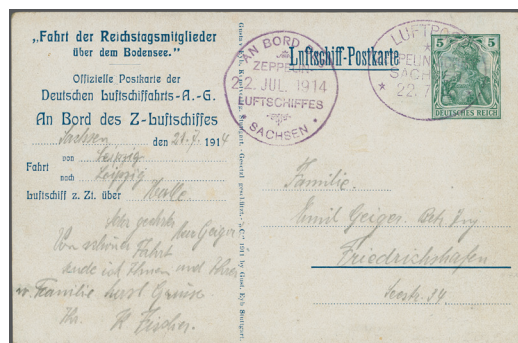 „Fahrt der Reichstagsmitglieder
über dem Bodensee."
Offizielle Postkarte der
Deutschen Luftschiffahrts-A.-G.
An Bord des Z-Luftschiffes
Sachsen den 21.7.1914
Fahrt von Leipzig
nach Leipzig
Luftschiff z. Zt. über Halle
Sehr geehrter Herr Geiger
Von schöner Fahrt
sende ich Ihnen und Ihrer
w. Familie herzl. Grüsse
Ihr. K. Fischer.
AN BORD DES
ZEPPELIN-
22. JUL. 1914
LUFTSCHIFFES
* SACHSEN *
Luftschiff-Postkarte
LUFTPOST
SACHSEN
22.7.
5 5
DEUTSCHES REICH
Familie.
Emil Geiger.
Friedrichshafen
Seestr. 34